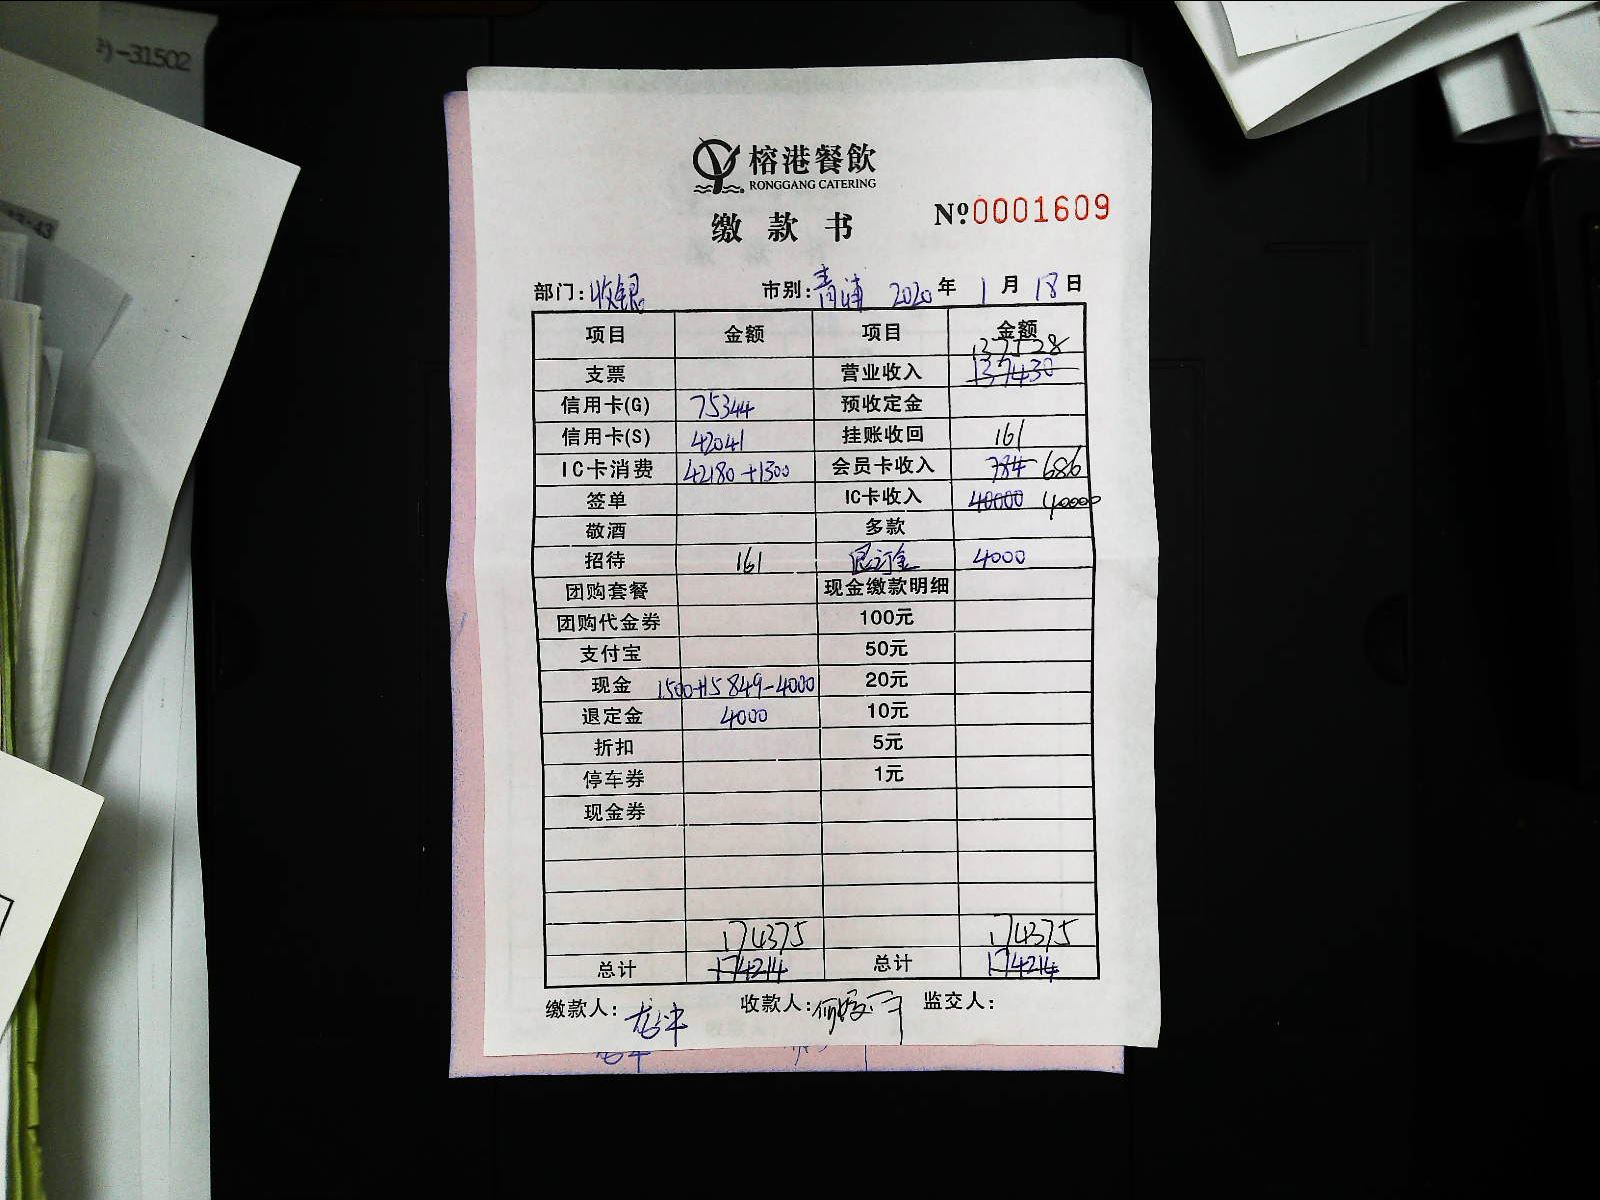 )-31502
榕港餐飲
RONGGANG CATERING
缴款书 Nº0001609
部门:收银 市别:青浦 2020年1月18日
项目 金额 项目 金额
137528
支票 营业收入 137430
信用卡(G) 75344 预收定金
信用卡(S) 42041 挂账收回 161
IC卡消费 42180+1300 会员卡收入 784 686
签单 IC卡收入 40000 40000
敬酒 多款
招待 161 退订金 4000
团购套餐 现金缴款明细
团购代金券 100元
支付宝 50元
现金 1500+15849-4000 20元
退定金 4000 10元
折扣 5元
停车券 1元
现金券
174375 174375
总计 174214 总计 174214
缴款人: 收款人: 监交人: